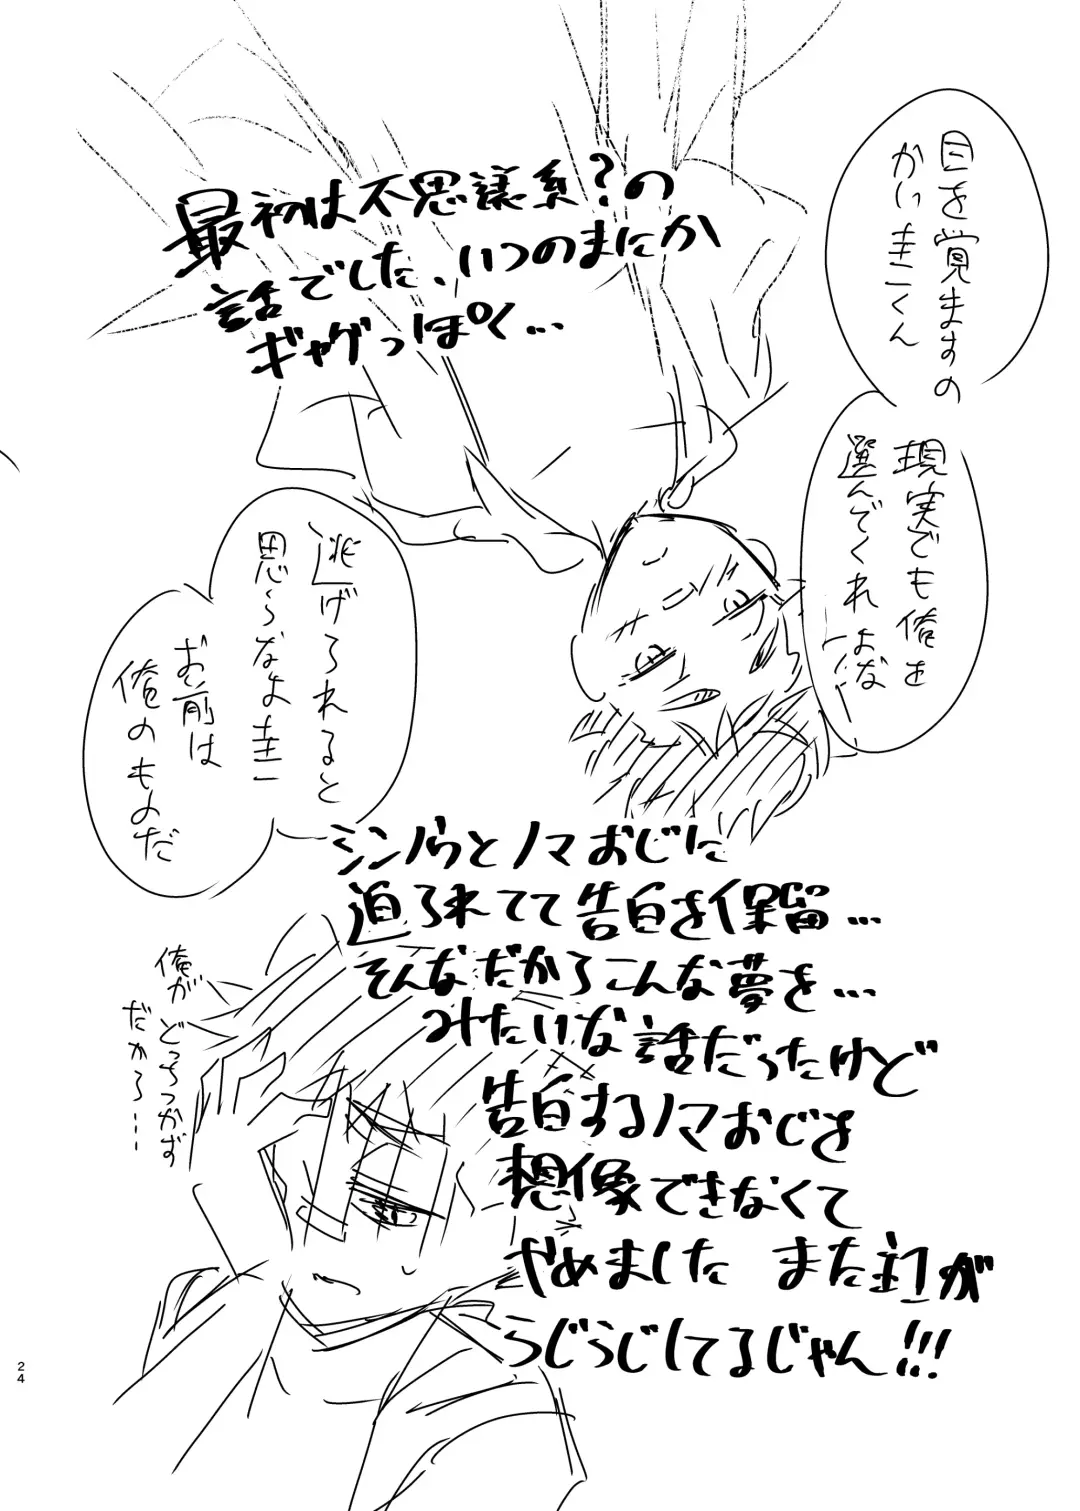 目を覚ますの
かい圭一くん
現実でも俺を
選んでくれよな
最初は不思議系?の
話でした、いつのまにか
ギャグっぽく…
逃げられると
思うなよ圭一
お前は
俺のものだ
シンノウとノマおじに
迫られてて告白を保留…
そんなだからこんな夢を…
みたいな話だったけど
告白するノマおじを
想像できなくて
やめました また圭一が
うじうじしてるじゃん!!!
俺が
どっちつかず
だから…
24